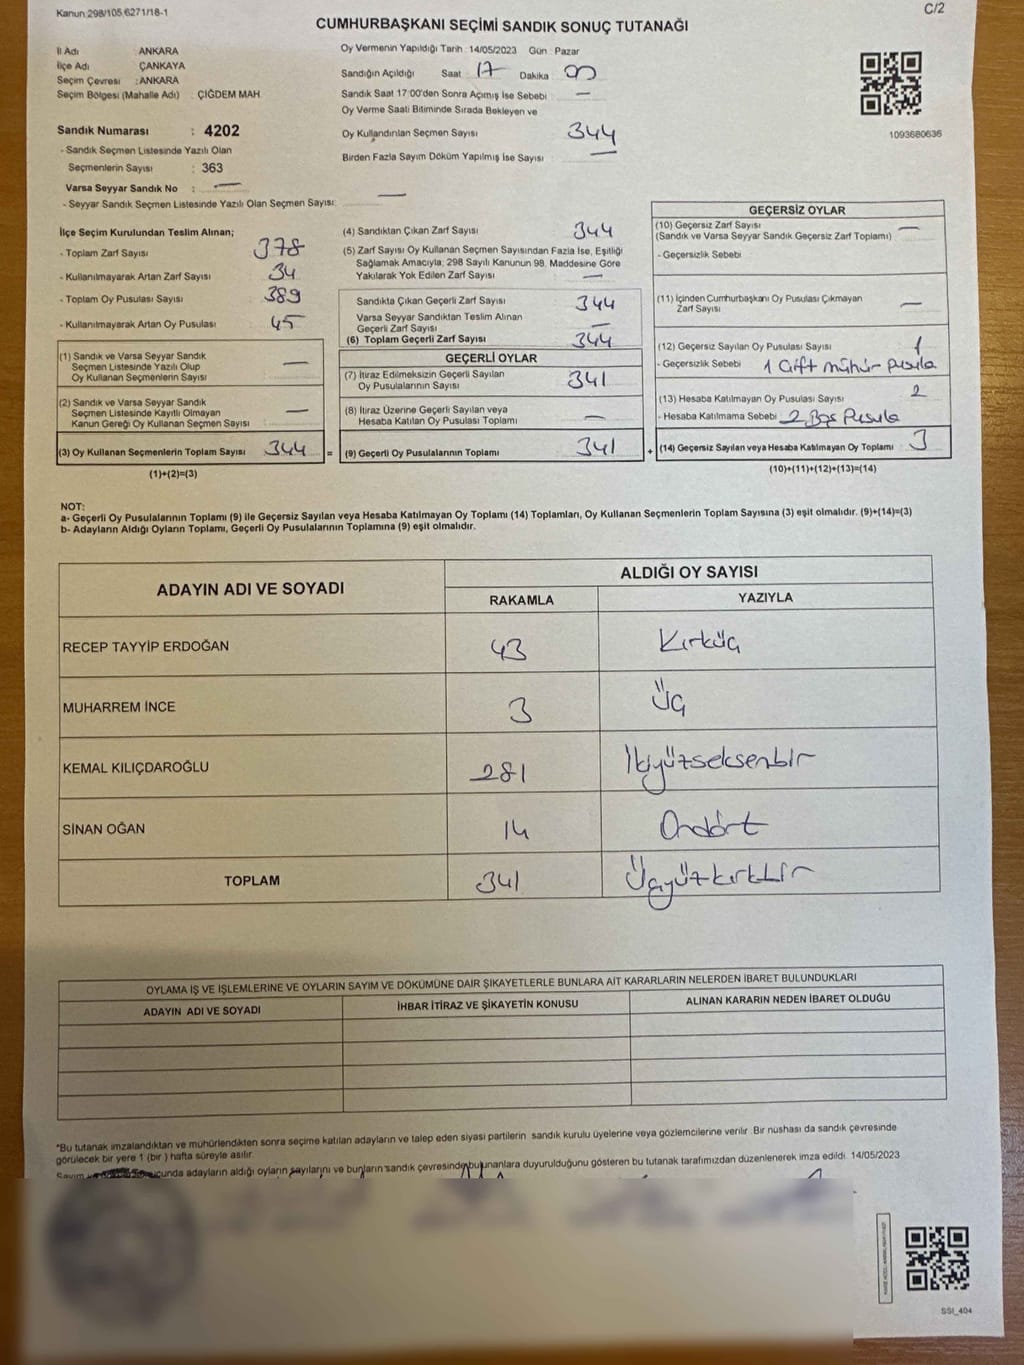 Kanun 298/105,6271/18-1
C/2
CUMHURBAŞKANI SEÇİMİ SANDIK SONUÇ TUTANAĞI
İl Adı ANKARA
İlçe Adı ÇANKAYA
Seçim Çevresi : ANKARA
Seçim Bölgesi (Mahalle Adı) : ÇİĞDEM MAH.
Sandık Numarası : 4202
- Sandık Seçmen Listesinde Yazılı Olan
Seçmenlerin Sayısı : 363
Varsa Seyyar Sandık No : —
- Seyyar Sandık Seçmen Listesinde Yazılı Olan Seçmen Sayısı: —
Oy Vermenin Yapıldığı Tarih : 14/05/2023 Gün : Pazar
Sandığın Açıldığı Saat 17 Dakika 00
Sandık Saat 17:00'den Sonra Açımış İse Sebebi —
Oy Verme Saati Bitiminde Sırada Bekleyen ve
Oy Kullandırılan Seçmen Sayısı 344
Birden Fazla Sayım Döküm Yapılmış İse Sayısı —
1093680636
İlçe Seçim Kurulundan Teslim Alınan;
- Toplam Zarf Sayısı 378
- Kullanılmayarak Artan Zarf Sayısı 34
- Toplam Oy Pusulası Sayısı 389
- Kullanılmayarak Artan Oy Pusulası 45
(1) Sandık ve Varsa Seyyar Sandık
Seçmen Listesinde Yazılı Olup
Oy Kullanan Seçmenlerin Sayısı —
(2) Sandık ve Varsa Seyyar Sandık
Seçmen Listesinde Kayıtlı Olmayan
Kanun Gereği Oy Kullanan Seçmen Sayısı —
(3) Oy Kullanan Seçmenlerin Toplam Sayısı 344 =
(1)+(2)=(3)
(4) Sandıktan Çıkan Zarf Sayısı 344
(5) Zarf Sayısı Oy Kullanan Seçmen Sayısından Fazla İse, Eşitliği
Sağlamak Amacıyla; 298 Sayılı Kanunun 98. Maddesine Göre
Yakılarak Yok Edilen Zarf Sayısı —
Sandıkta Çıkan Geçerli Zarf Sayısı 344
Varsa Seyyar Sandıktan Teslim Alınan
Geçerli Zarf Sayısı —
(6) Toplam Geçerli Zarf Sayısı 344
GEÇERLİ OYLAR
(7) İtiraz Edilmeksizin Geçerli Sayılan
Oy Pusulalarının Sayısı 341
(8) İtiraz Üzerine Geçerli Sayılan veya
Hesaba Katılan Oy Pusulası Toplamı —
(9) Geçerli Oy Pusulalarının Toplamı 341 +
GEÇERSİZ OYLAR
(10) Geçersiz Zarf Sayısı —
(Sandık ve Varsa Seyyar Sandık Geçersiz Zarf Toplamı)
- Geçersizlik Sebebi
(11) İçinden Cumhurbaşkanı Oy Pusulası Çıkmayan
Zarf Sayısı —
(12) Geçersiz Sayılan Oy Pusulası Sayısı 1
- Geçersizlik Sebebi 1 Çift mühür pusula
(13) Hesaba Katılmayan Oy Pusulası Sayısı 2
- Hesaba Katılmama Sebebi 2 Boş Pusula
(14) Geçersiz Sayılan veya Hesaba Katılmayan Oy Toplamı 3
(10)+(11)+(12)+(13)=(14)
NOT:
a- Geçerli Oy Pusulalarının Toplamı (9) ile Geçersiz Sayılan veya Hesaba Katılmayan Oy Toplamı (14) Toplamları, Oy Kullanan Seçmenlerin Toplam Sayısına (3) eşit olmalıdır. (9)+(14)=(3)
b- Adayların Aldığı Oyların Toplamı, Geçerli Oy Pusulalarının Toplamına (9) eşit olmalıdır.
ADAYIN ADI VE SOYADI
ALDIĞI OY SAYISI
RAKAMLA YAZIYLA
RECEP TAYYİP ERDOĞAN 43 Kırküç
MUHARREM İNCE 3 Üç
KEMAL KILIÇDAROĞLU 281 İkiyüzseksenbir
SİNAN OĞAN 14 Ondört
TOPLAM 341 Üçyüzkırkbir
OYLAMA İŞ VE İŞLEMLERİNE VE OYLARIN SAYIM VE DÖKÜMÜNE DAİR ŞİKAYETLERLE BUNLARA AİT KARARLARIN NELERDEN İBARET BULUNDUKLARI
ADAYIN ADI VE SOYADI İHBAR İTİRAZ VE ŞİKAYETİN KONUSU ALINAN KARARIN NEDEN İBARET OLDUĞU
*Bu tutanak imzalandıktan ve mühürlendikten sonra seçime katılan adayların ve talep eden siyasi partilerin sandık kurulu üyelerine veya gözlemcilerine verilir. Bir nüshası da sandık çevresinde
görülecek bir yere 1 (bir ) hafta süreyle asılır.
Sayım ucunda adayların aldığı oyların sayılarını ve bunların sandık çevresinde bulunanlara duyurulduğunu gösteren bu tutanak tarafımızdan düzenlenerek imza edildi. 14/05/2023
SSI_404